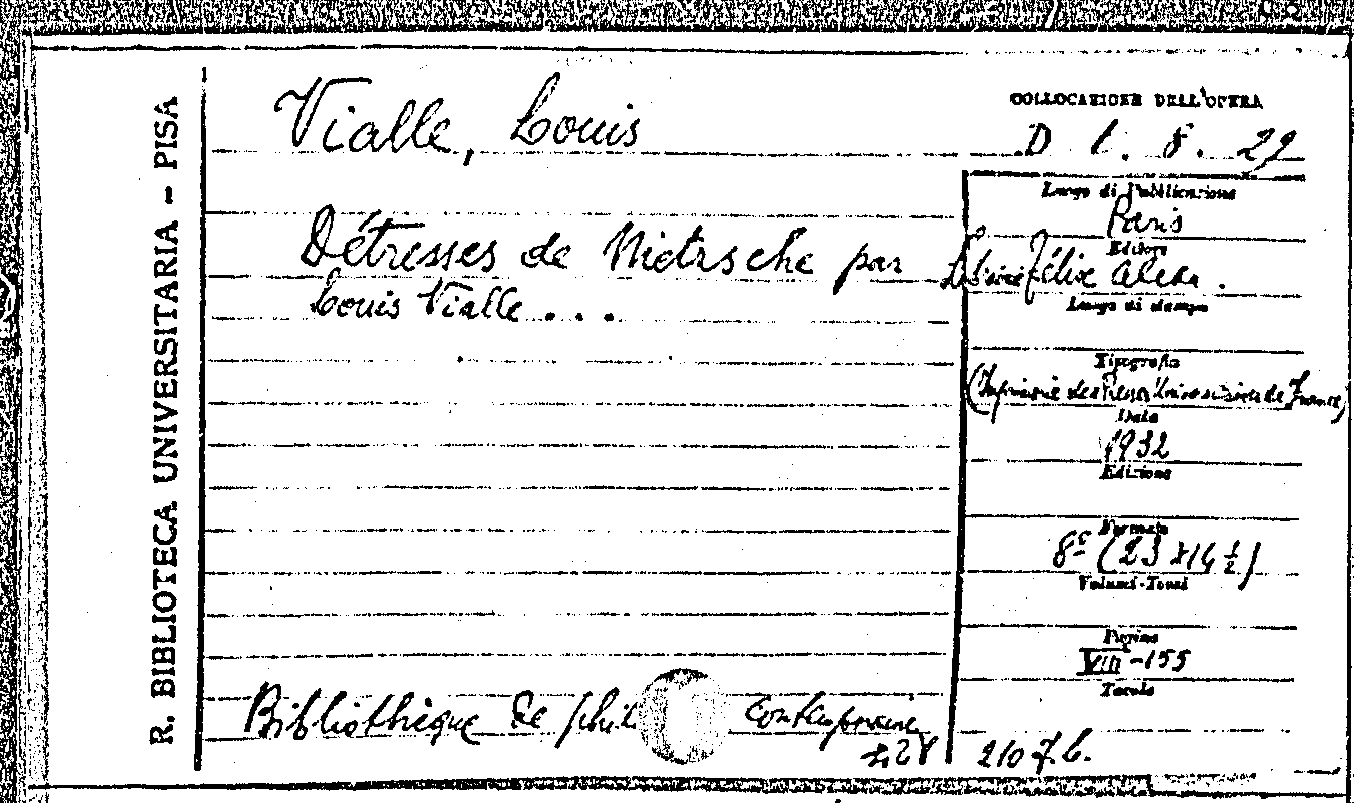 R. BIBLIOTECA UNIVERSITARIA - PISA
Vialle, Louis
COLLOCAZIONE DELL'OPERA
D 1. 8. 27
Détresses de Nietzsche par
Louis Vialle . . .
Luogo di Pubblicazione
Paris
Editore
Félix Alcan.
Luogo di stampa
Tipografia
(Imprimerie des Presses Universitaires de France)
Data
1932
Edizione
Formato
8º (23 x 14 ½)
Volumi-Tomi
Pagine
VIII-155
Tavole
Bibliothèque de phil contemporaine